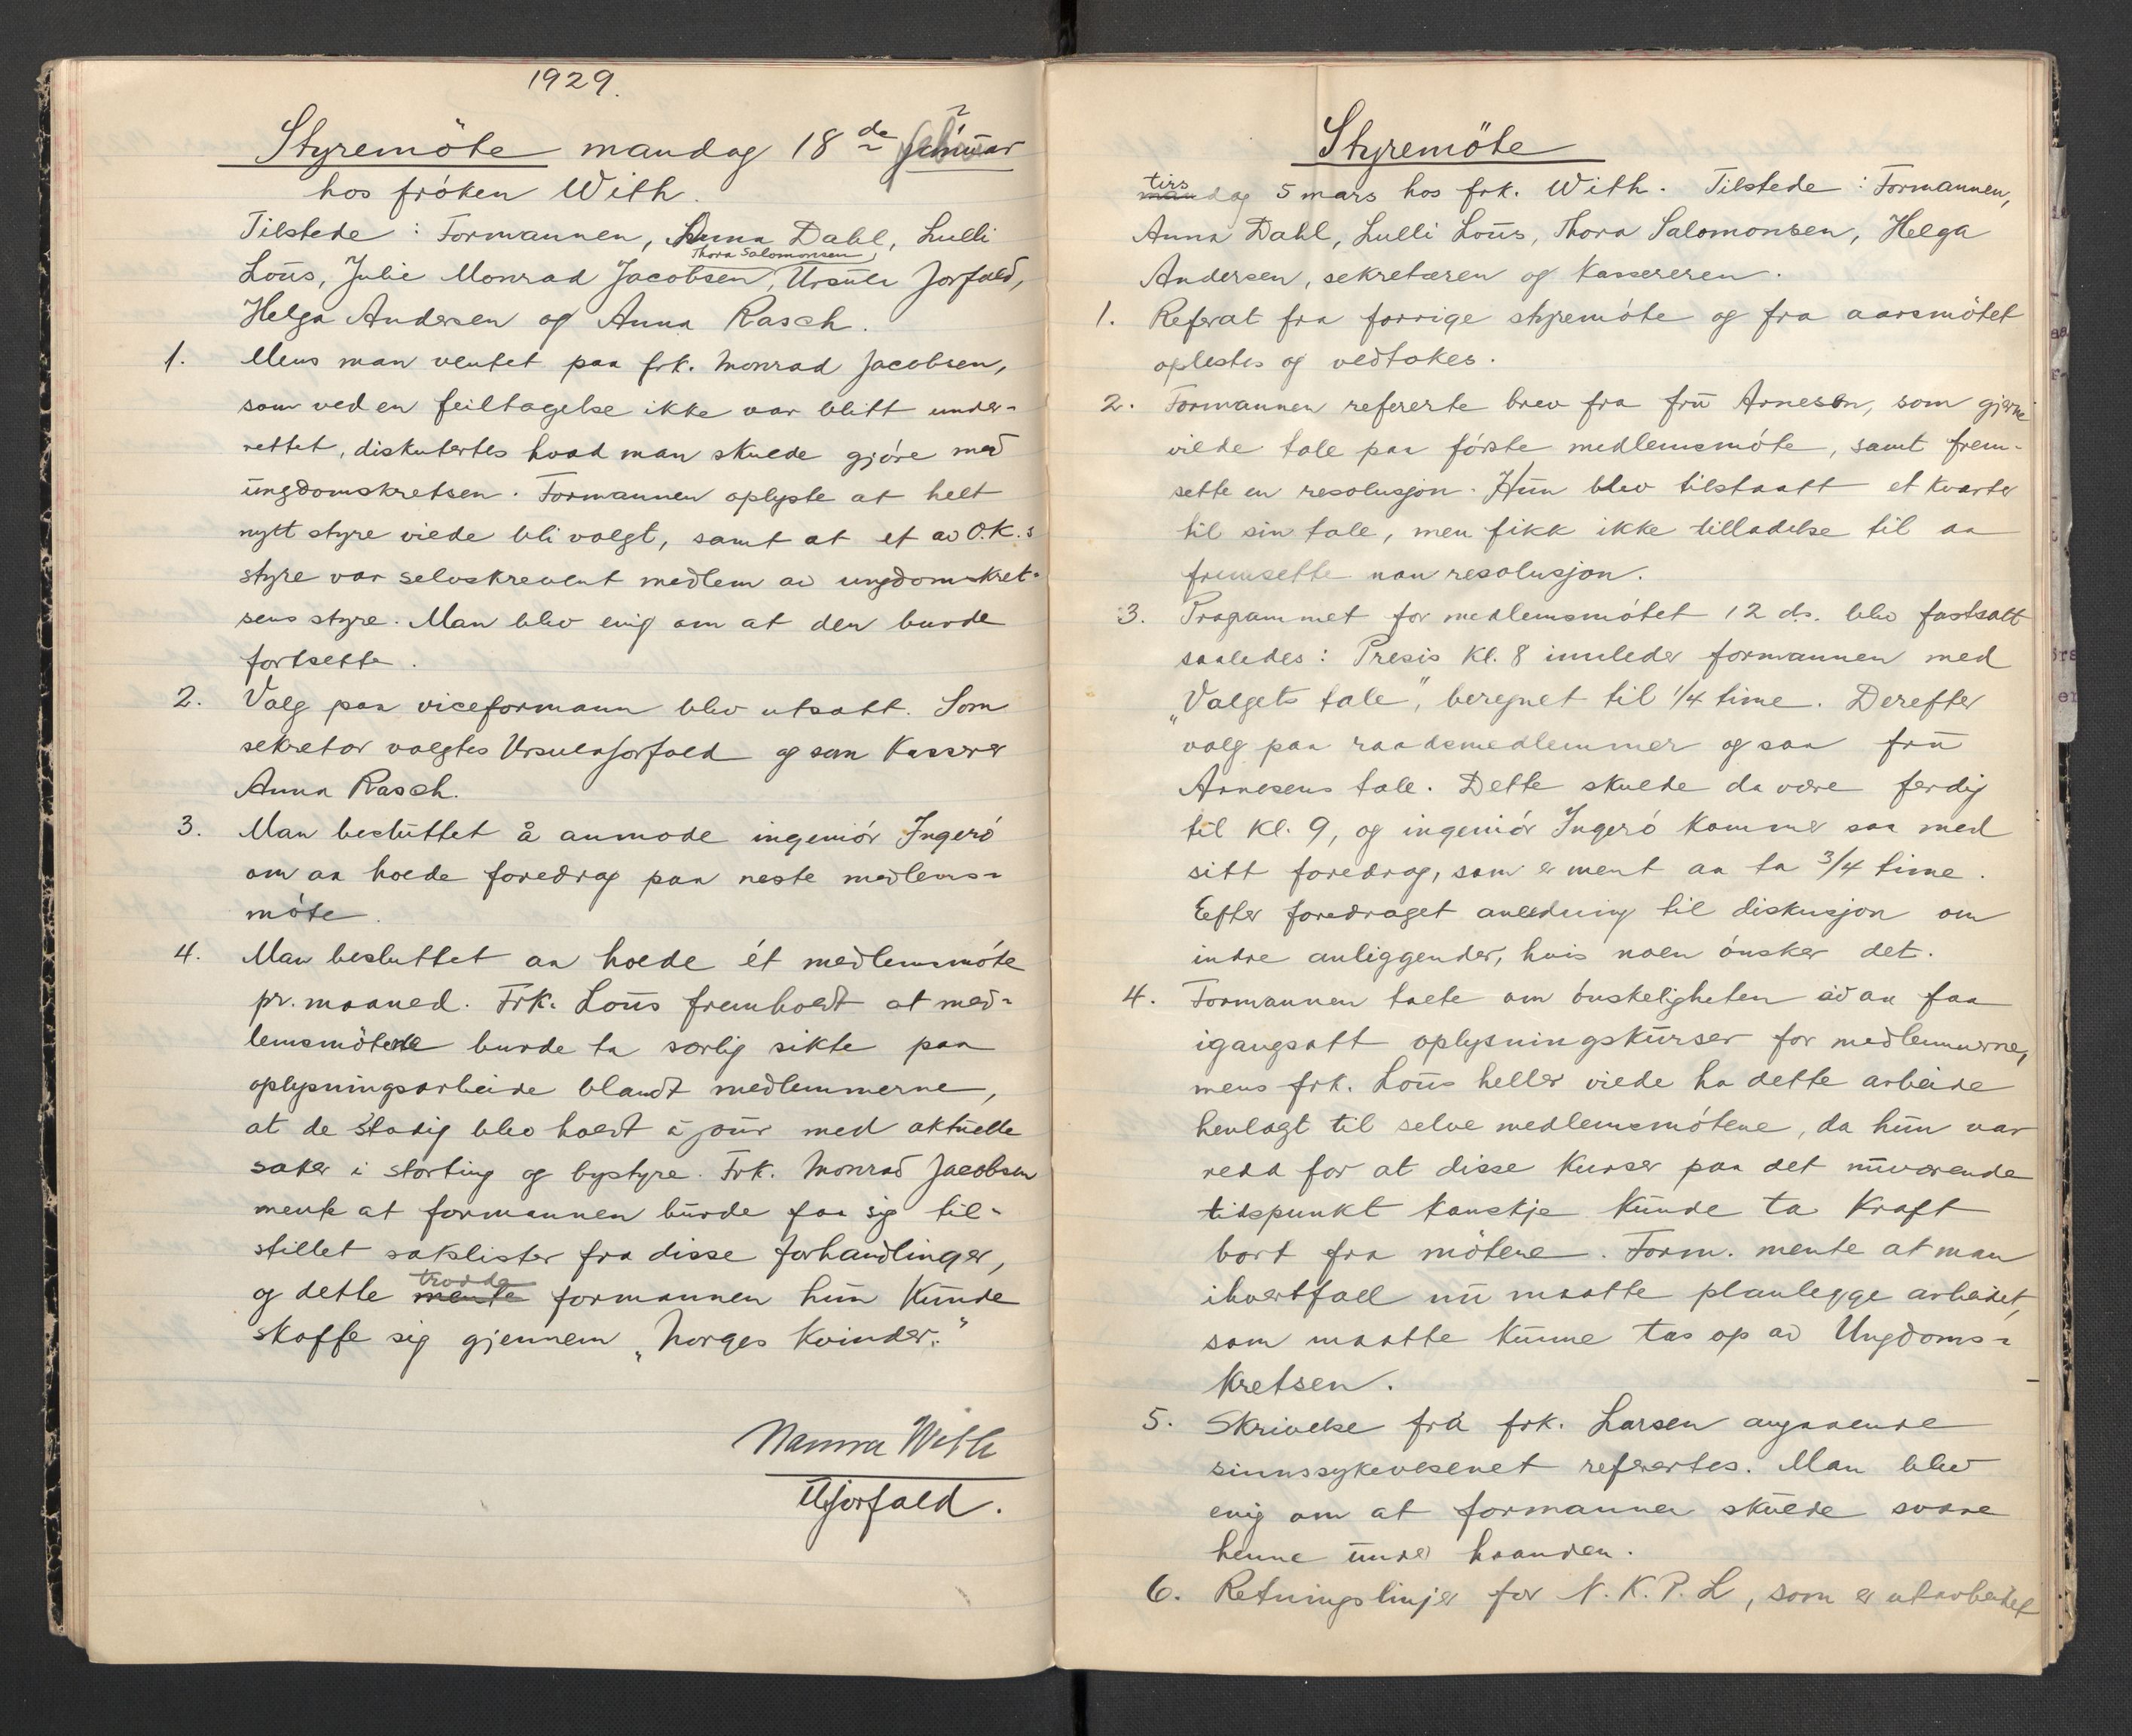 1929.
Styremöte mandag 18de
hos fröken With.
Tilstede: Formannen, Anna Dahl, Lulli
Thora Salomonsen,
Loüs, Julie Monrad Jacobsen, Ursula Jorfald,
Helga Andersen og Anna Rasch.
1. Mens man ventet paa frk. Monrad Jacobsen,
som ved en feiltagelse ikke var blitt under-
rettet, diskutertes hvad man skulde gjöre med
üngdomskretsen. Formannen oplyste at helt
nytt styre vilde bli valgt, samt at et av O.K.s
styre var selvskrevent medlem av ungdomskret-
sens styre. Man blev enig om at den burde
fortsette.
2. Valg paa viceformann blev utsatt. Som
sekretær valgtes Ursula Jorfald og som Kasserer
Anna Rasch.
3. Man beslüttet å anmode ingeniör Ingerö
om aa holde foredrag paa neste medlems-
möte.
4. Man besluttet aa holde ét medlemsmöte
pr. maaned. Frk. Loüs fremholdt at med-
lemsmötene burde ta særlig sikte paa
oplysningsarbeide blandt medlemmerne,
at de stadig blev holdt à joür med aktüelle
saker i storting og bystyre. Frk. Monrad Jacobsen
mente at formannen bürde faa sig til-
stillet sakslister fra disse forhandlinger,
trodde
og dette mente formannen hün Künde
skaffe sig gjennem „Norges Kvinder."
Nanna With
UJorfald.
Styremöte
tirs
mandag 5 mars hos frk. With. Tilstede: Formannen,
Anna Dahl, Lulli Loüs, Thora Salomonsen, Helga
Andersen, sekretæren og Kassereren.
1. Referat fra forrige styremöte og fra aarsmötet
oplestes og vedtokes.
2. Formannen refererte brev fra frü Arnesen, som gjerne
vilde tale paa förste medlemsmöte, samt frem-
sette en resolusjon. Hün blev tilstaatt et kvarter
til sin tale, men fikk ikke tilladelse til aa
fremsette noen resolusjon.
3. Programmet for medlemsmötet 12 ds. blev fastsatt
saaledes: Presis Kl. 8 innleder formannen med
„Valgets tale", beregnet til 1/4 time. Derefter
valg paa raadsmedlemmer og saa frü
Arnesens tale. Dette skulde da være ferdig
til Kl. 9, og ingeniör Ingerö Kommer saa med
sitt foredrag, som er ment aa ta 3/4 time.
Efter foredraget anledning til diskusjon om
indre anliggender, hvis noen önsker det.
4. Formannen talte om önskeligheten av aa faa
igangsatt oplysningskürser for medlemmerne,
mens frk. Loüs heller vilde ha dette arbeide
henlagt til selve medlemsmötene, da hün var
redd for at disse Kurser paa det nüværende
tidspunkt kanskje Künde ta Kraft
bort fra mötene. Form. mente at man
ihvertfall nü maatte planlegge arbeidet,
som maatte Künne tas op av Ungdoms-
Kretsen.
5. Skrivelse fra frk. Larsen angaaende
sinnssykevesenet refertes. Man blev
enig om at formannen skülde svare
henne ünder haanden.
6. Retningslinjer for N.K.P.L, som er utarbeidet